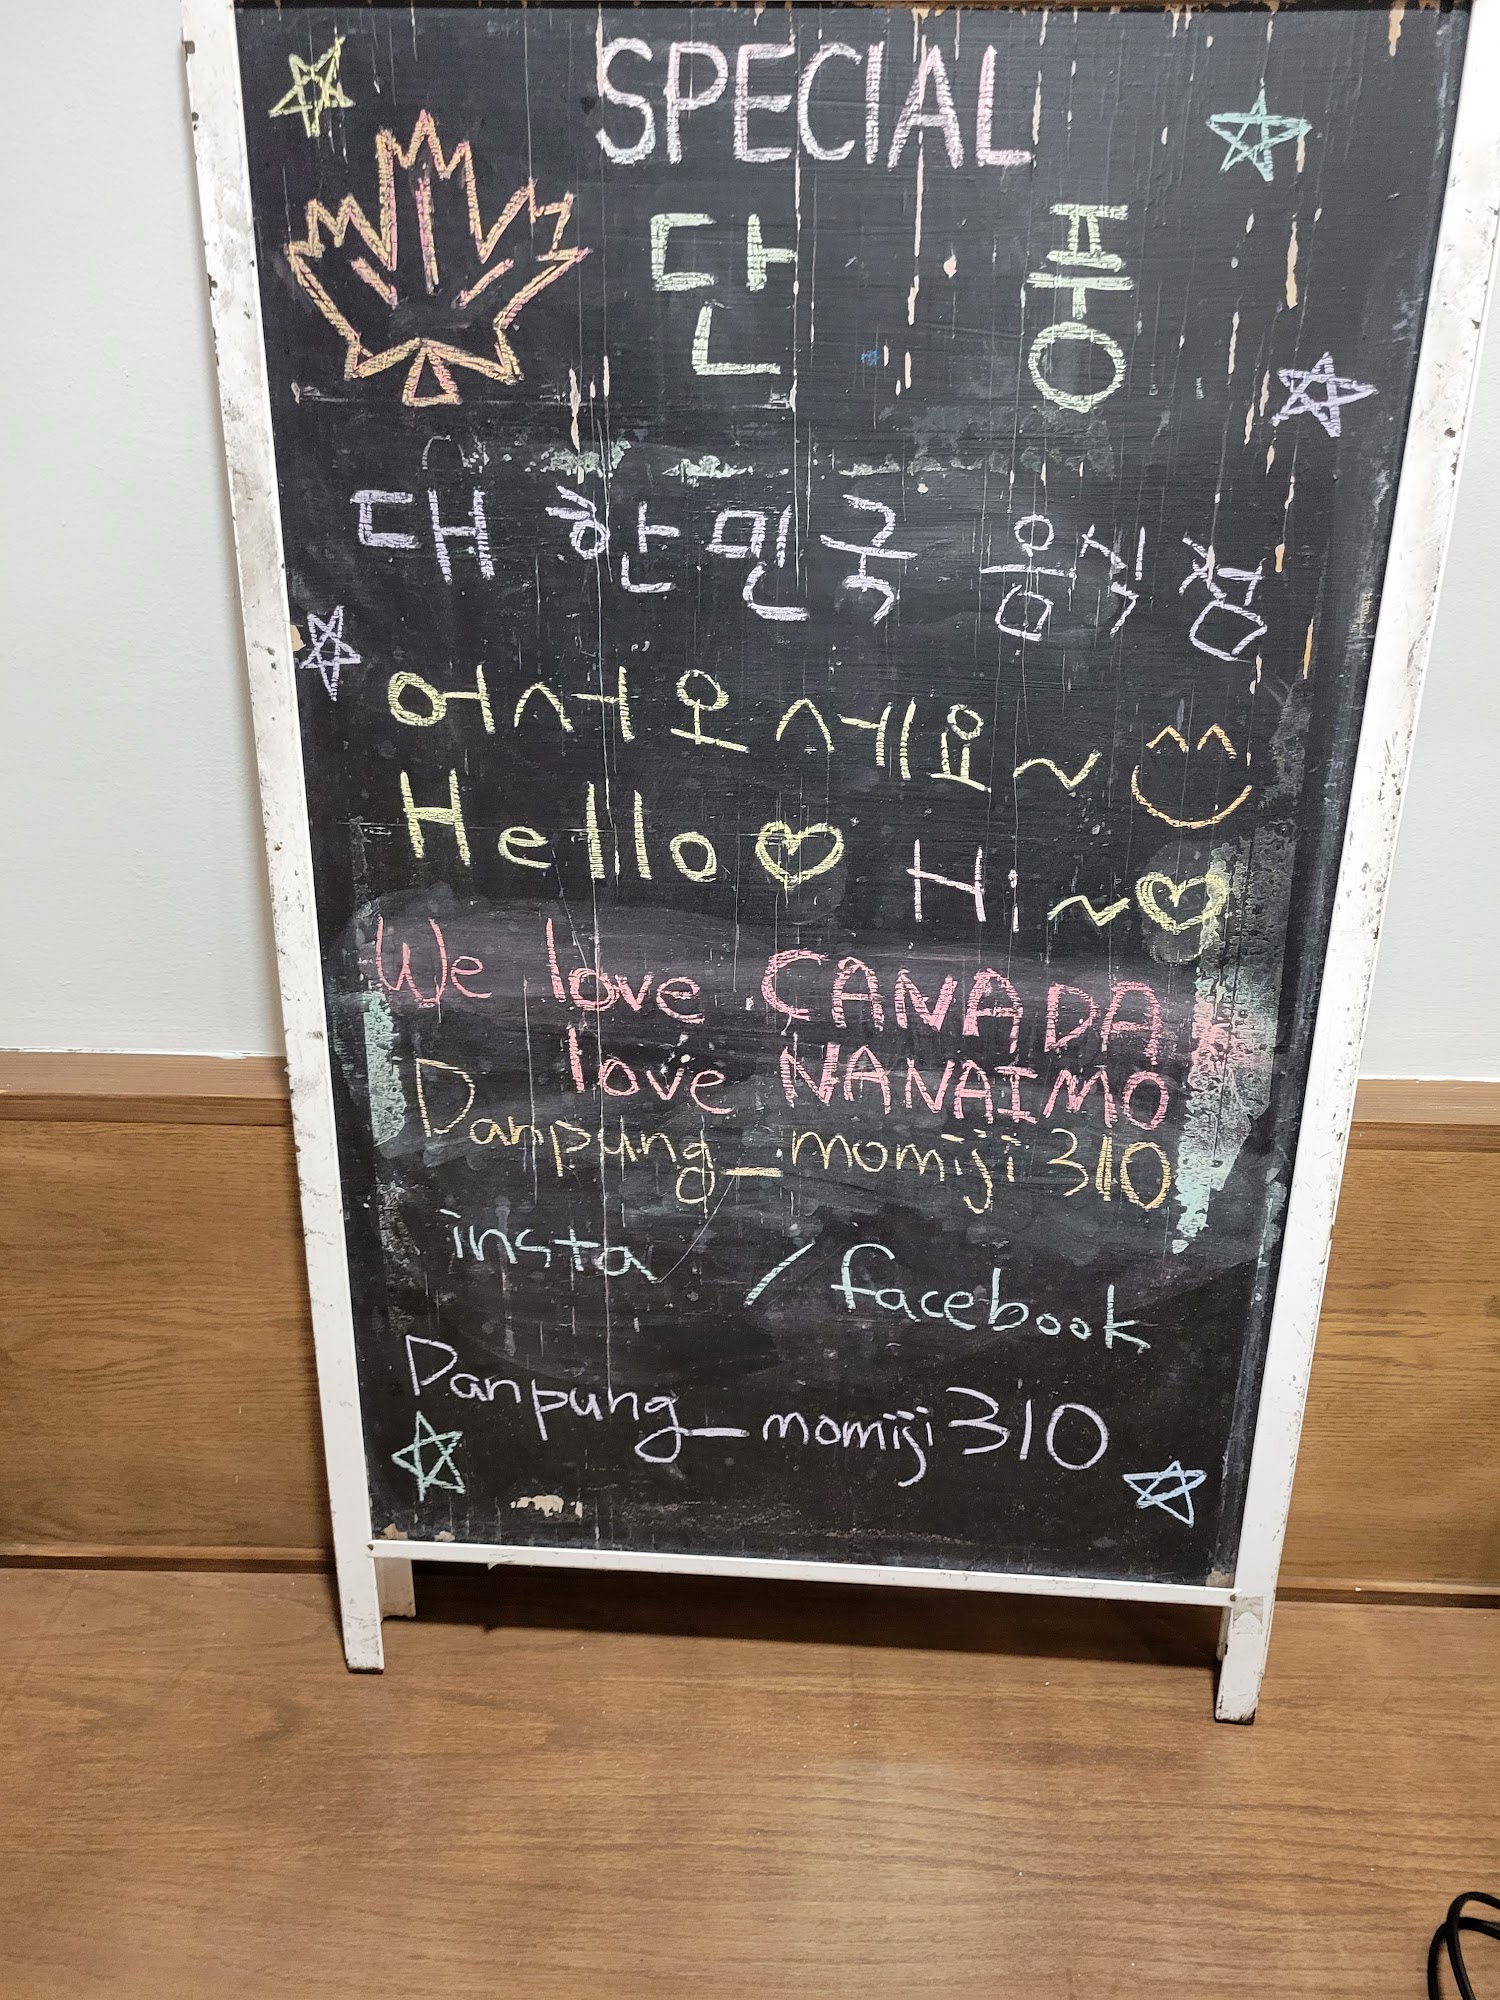 SPECIAL
단 풍
대한민국 음식점
어서오세요~
Hello♡ Hi~♡
We love CANADA
love NANAIMO
Danpung_momiji310
insta / facebook
Danpung_momiji310